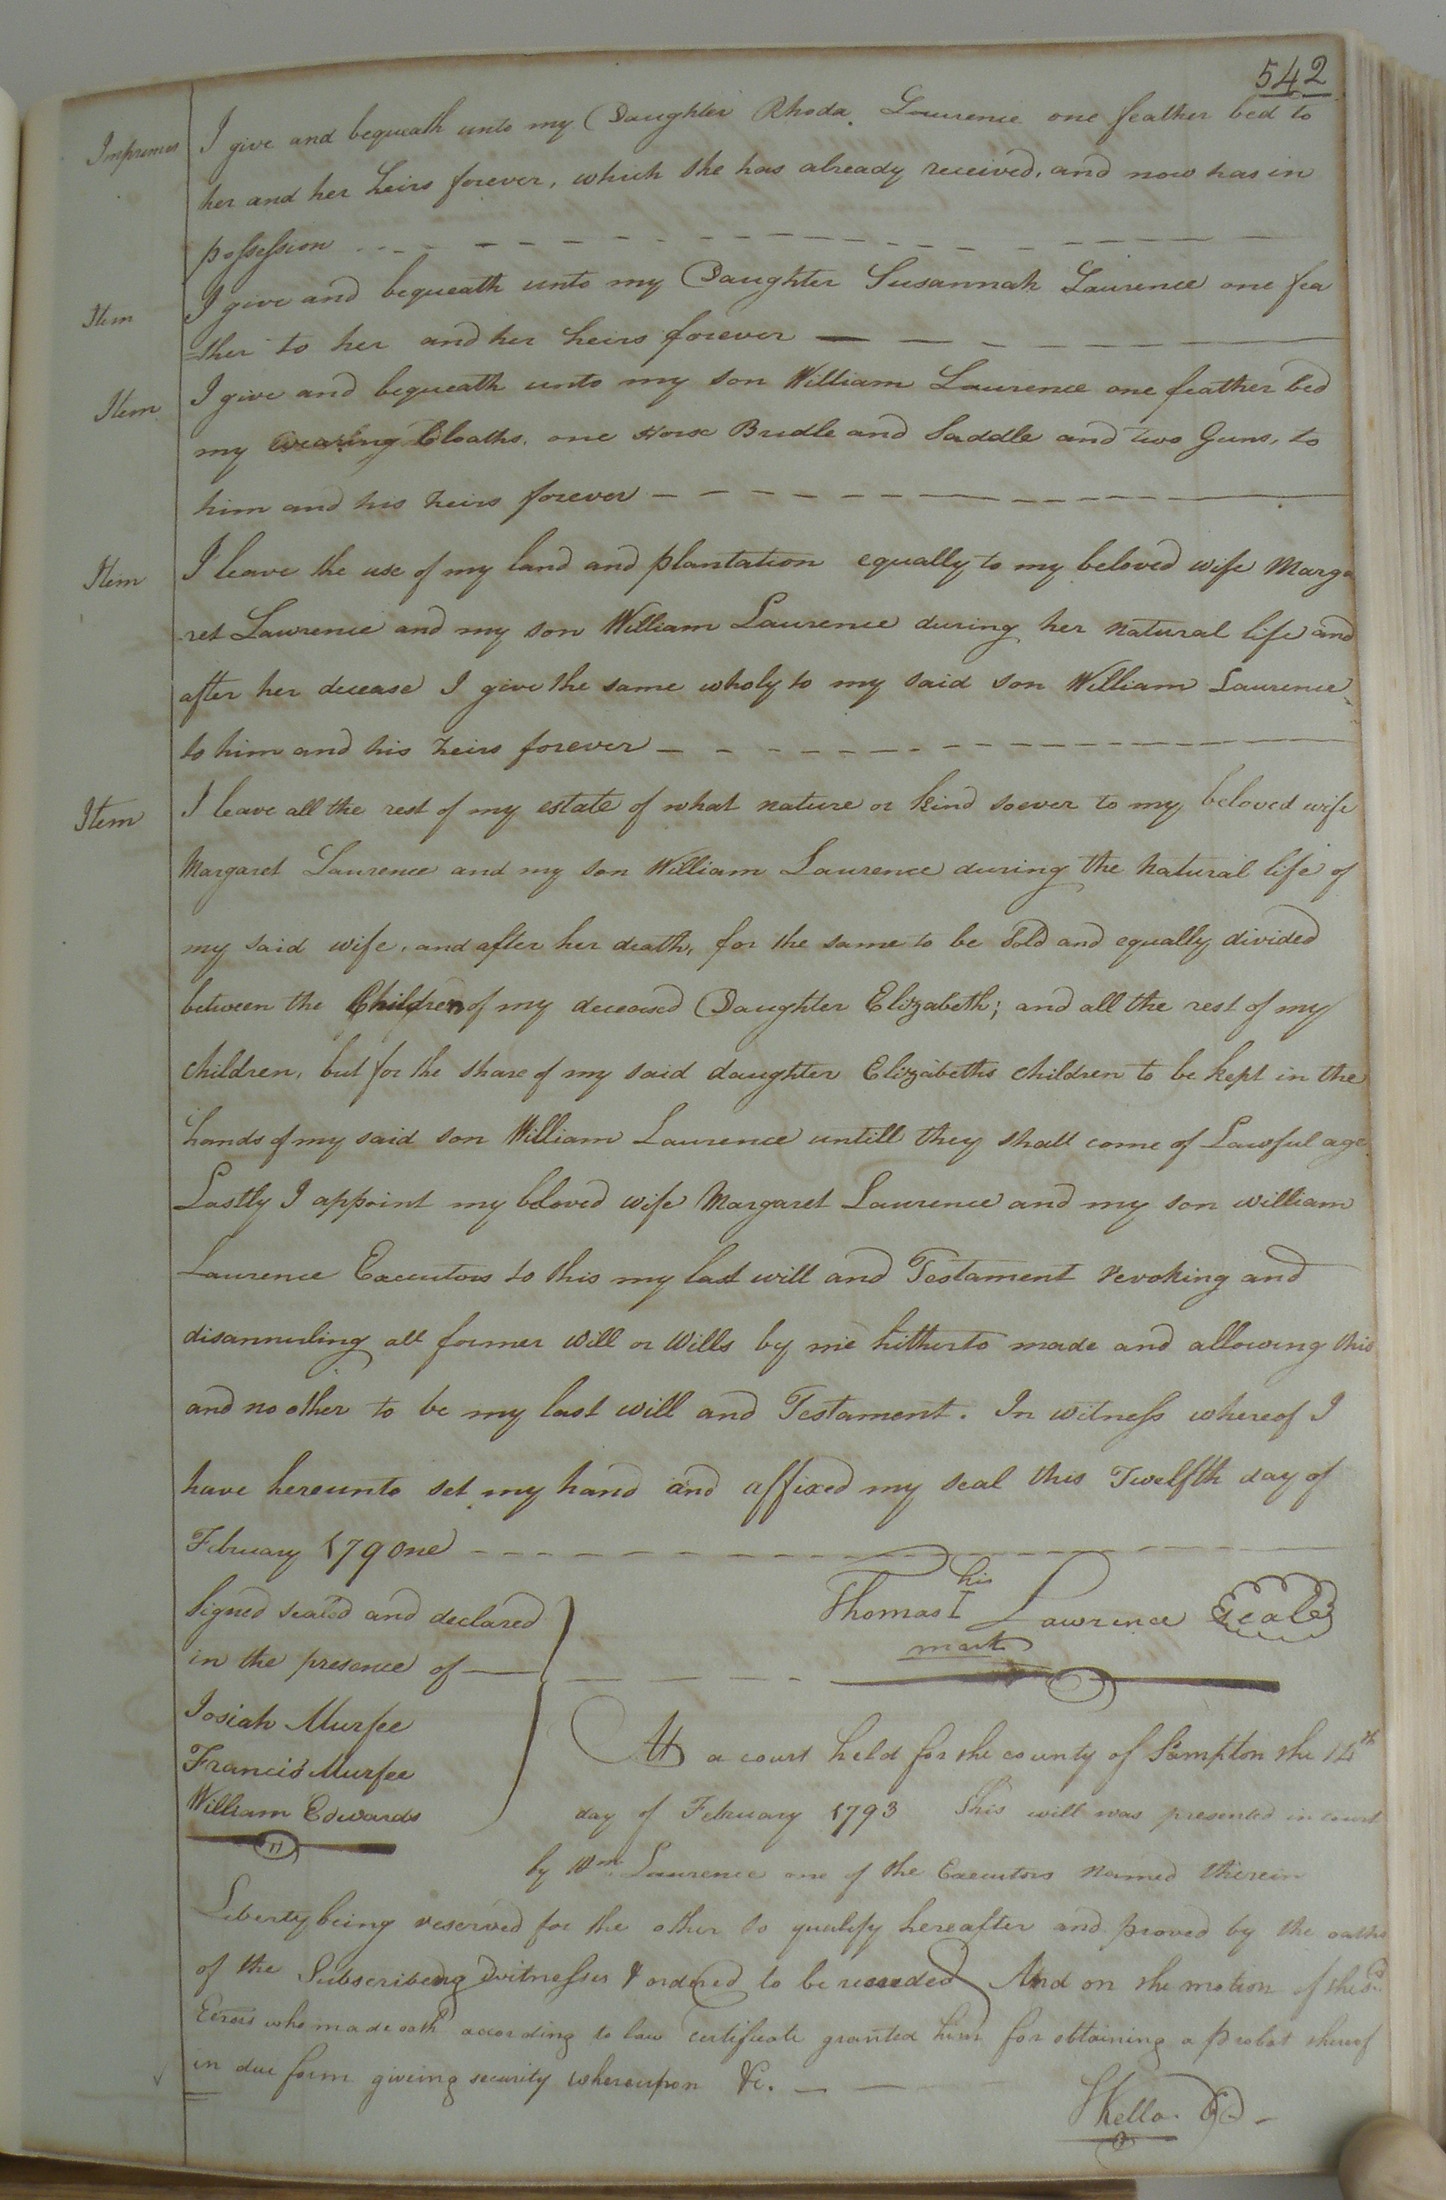 542
Imprimis I give and bequeath unto my Daughter Rhoda Lawrence one feather bed to
her and her heirs forever, which she has already received, and now has in
possession
Item I give and bequeath unto my Daughter Susannah Laurence one fea
=ther to her and her heirs forever
Item I give and bequeath unto my son William Laurence one feather bed
my wearing Cloaths, one Horse Bridle and Saddle and two Guns, to
him and his heirs forever
Item I leave the use of my land and plantation equally to my beloved wife Marga
ret Lawrence and my son William Laurence during her natural life and
after her decease I give the same wholy to my said son William Laurence
to him and his heirs forever
Item I leave all the rest of my estate of what nature or kind soever to my beloved wife
Margaret Laurence and my son William Laurence during the natural life of
my said wife, and after her death, for the same to be Sold and equally divided
between the Children of my deceased Daughter Elizabeth; and all the rest of my
children, but for the share of my said daughter Elizabeths children to be kept in the
hands of my said son William Laurence untill they shall come of Lawful age
Lastly I appoint my beloved wife Margaret Laurence and my son william
Laurence Executors to this my last will and Testament revoking and
disannuling all former will or wills by me hitherto made and allowing this
and no other to be my last will and Testament. In witness whereof I
have hereunto set my hand and affixed my seal this Twelfth day of
February 179 one
Signed sealed and declared
in the presence of
Josiah Murfee
Francis Murfee
William Edwards
his
Thomas I Lawrence Seale
mark
At a court held for the county of Sampton the 14th
day of February 1793 This will was presented in court
by Wm Laurence one of the Executors named therein
Liberty being reserved for the other to qualify hereafter and proved by the oaths
of the Subscribeing witnesses & ordered to be recorded And on the motion of the sd
Exors who made oath according to law certificate granted him for obtaining a probat thereof
in due form giveing security whereupon &c.
SKello CC